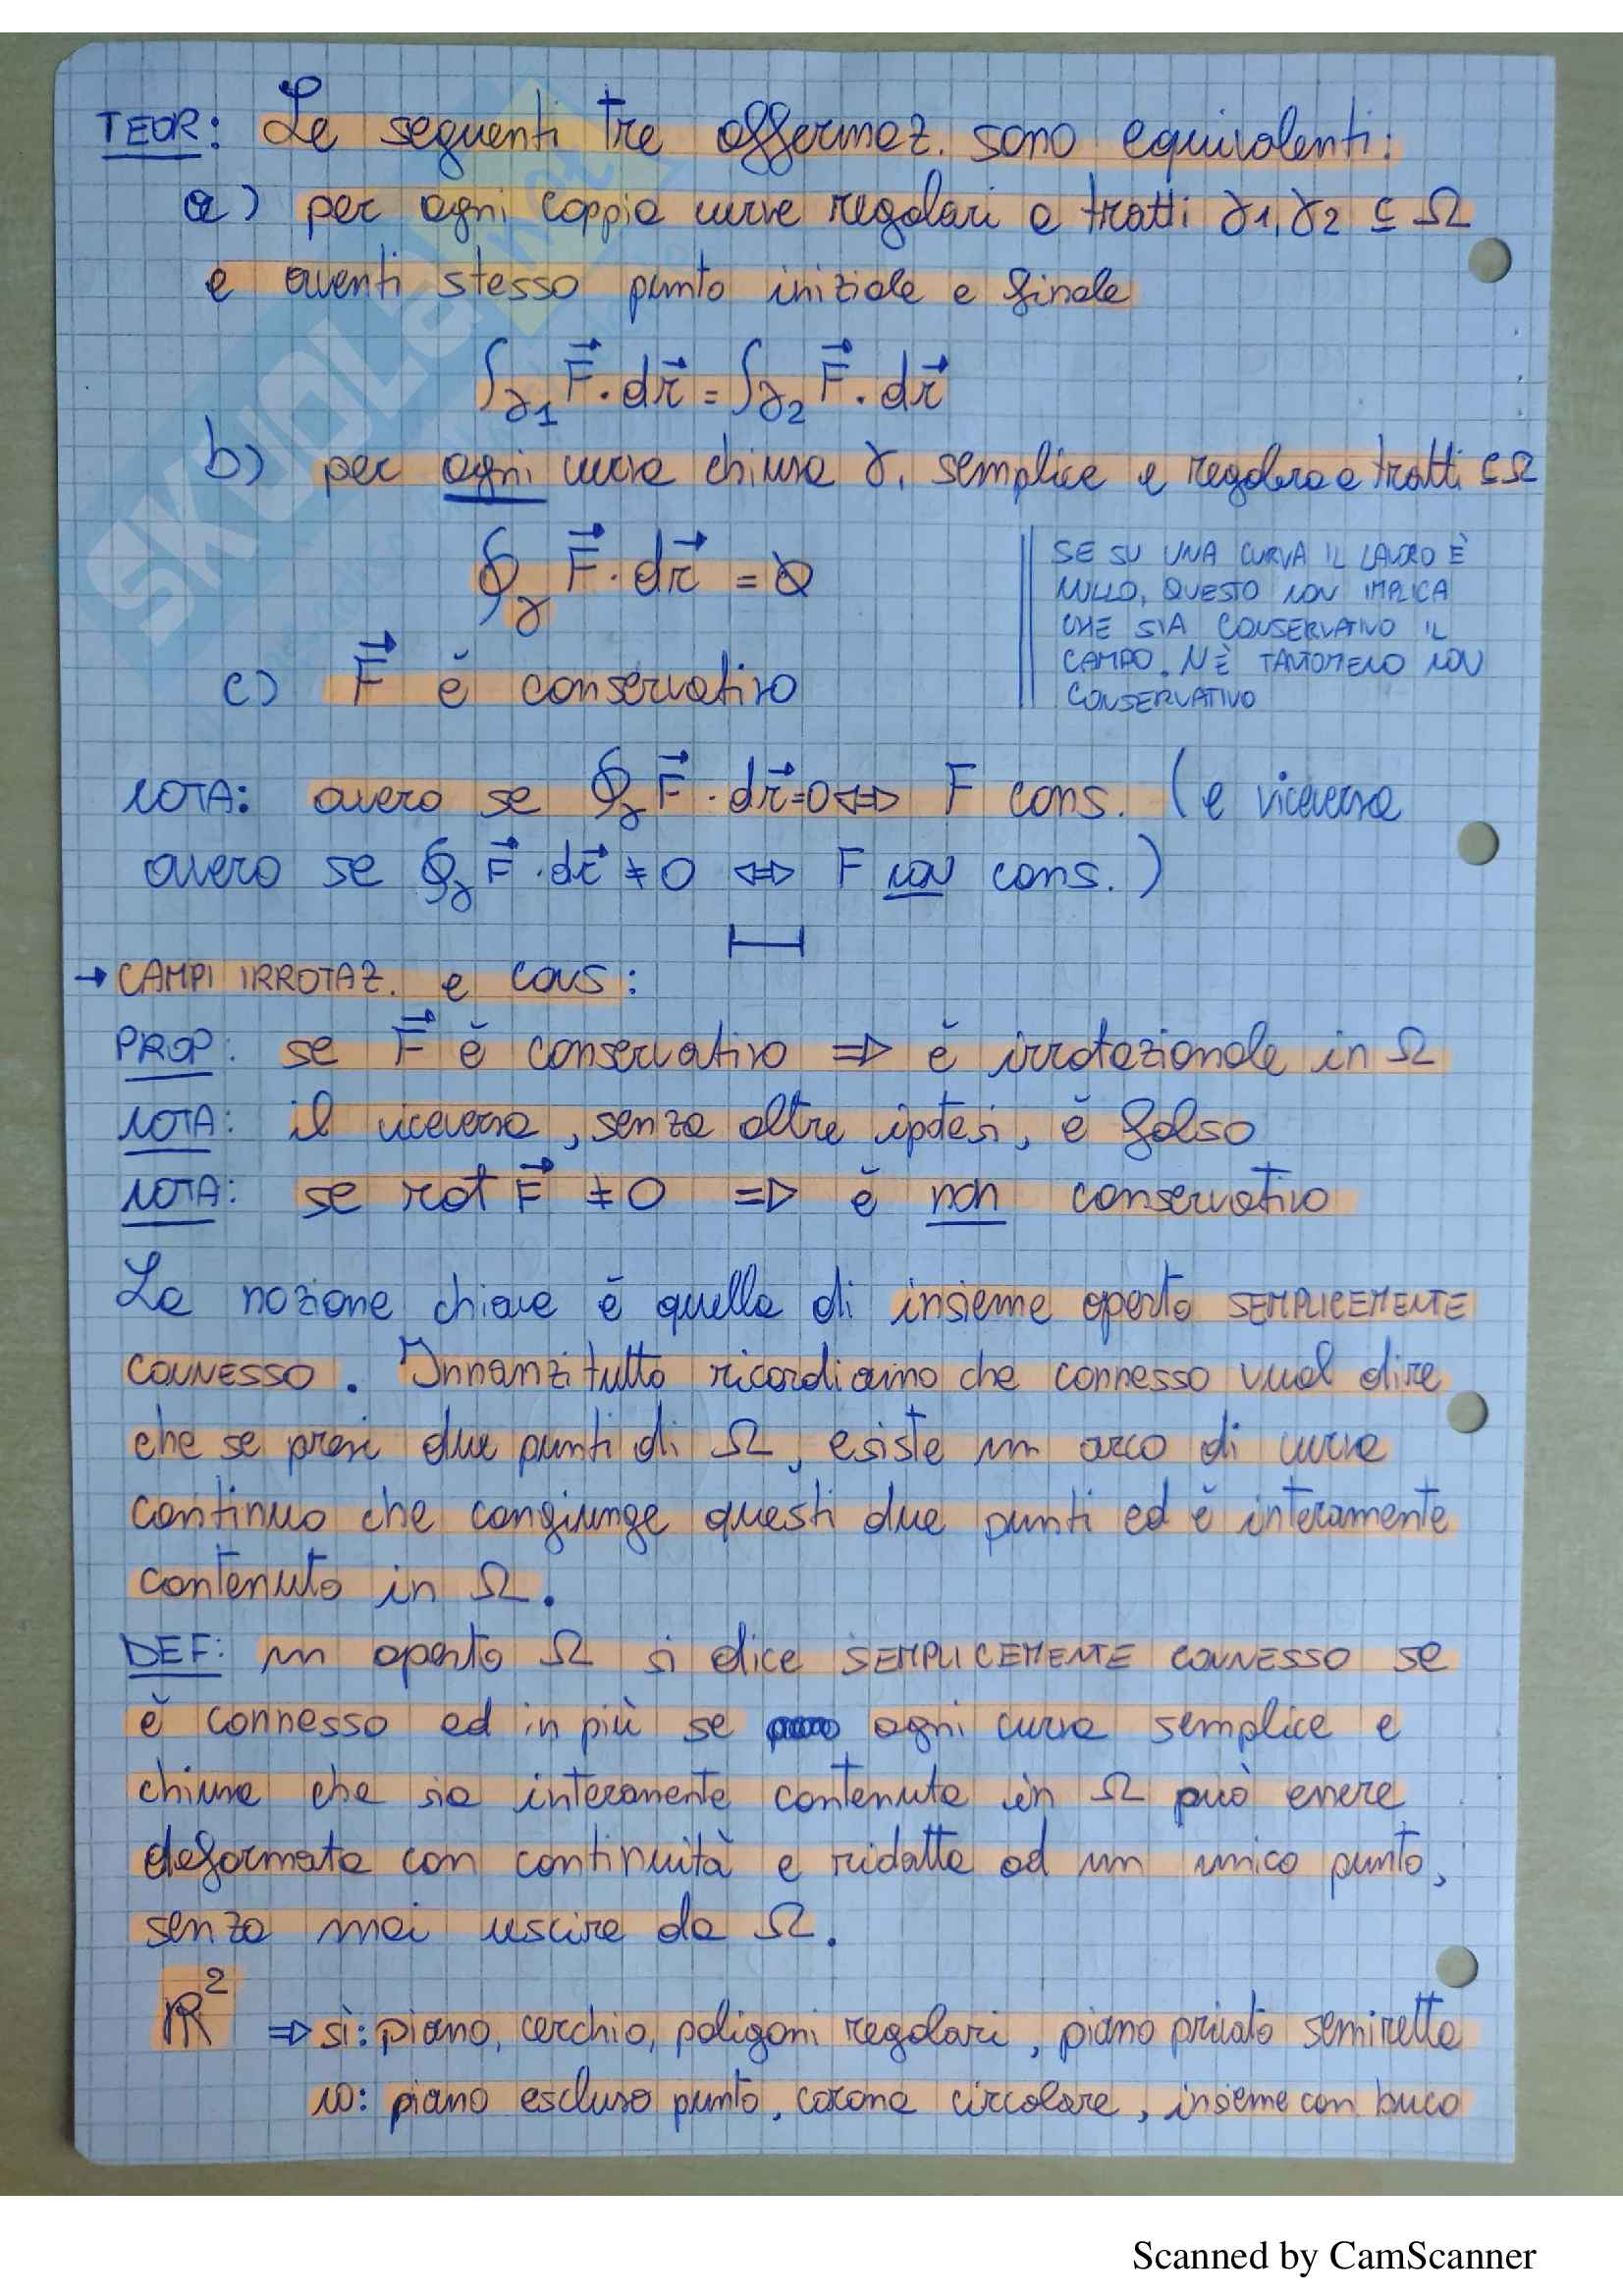 TEOR: Le seguenti tre affermaz. sono equivalenti:
a) per ogni coppia curve regolari a tratti γ1, γ2 ⊆ Ω
e aventi stesso punto iniziale e finale
∫γ1 F⃗ · dr⃗ = ∫γ2 F⃗ · dr⃗
b) per ogni curva chiusa γ, semplice e regolare a tratti ⊆ Ω
∮γ F⃗ · dr⃗ = 0
SE SU UNA CURVA IL LAVORO È
NULLO, QUESTO NON IMPLICA
CHE SIA CONSERVATIVO IL
CAMPO. NÈ TANTOMENO NON
CONSERVATIVO
c) F⃗ è conservativo
NOTA: ovvero se ∮γ F⃗ · dr⃗ = 0 ⇔ F cons. (e viceversa
ovvero se ∮γ F⃗ · dr⃗ ≠ 0 ⇔ F non cons.)
→ CAMPI IRROTAZ. e CONS:
PROP: se F⃗ è conservativo ⇒ è irrotazionale in Ω
NOTA: il viceversa, senza altre ipotesi, è falso
NOTA: se rot F⃗ ≠ 0 ⇒ è non conservativo
La nozione chiave è quella di insieme aperto SEMPLICEMENTE
CONNESSO. Innanzitutto ricordiamo che connesso vuol dire
che se presi due punti di Ω, esiste un arco di curva
continuo che congiunge questi due punti ed è interamente
contenuto in Ω.
DEF: un aperto Ω si dice SEMPLICEMENTE CONNESSO se
è connesso ed in più se ogni curva semplice e
chiusa che sia interamente contenuta in Ω può essere
deformata con continuità e ridotta ad un unico punto,
senza mai uscire da Ω.
ℝ² ⇒ sì: piano, cerchio, poligoni regolari, piano privato semiretta
NO: piano escluso punto, corona circolare, insieme con buco
SKUOLA.net
Scanned by CamScanner